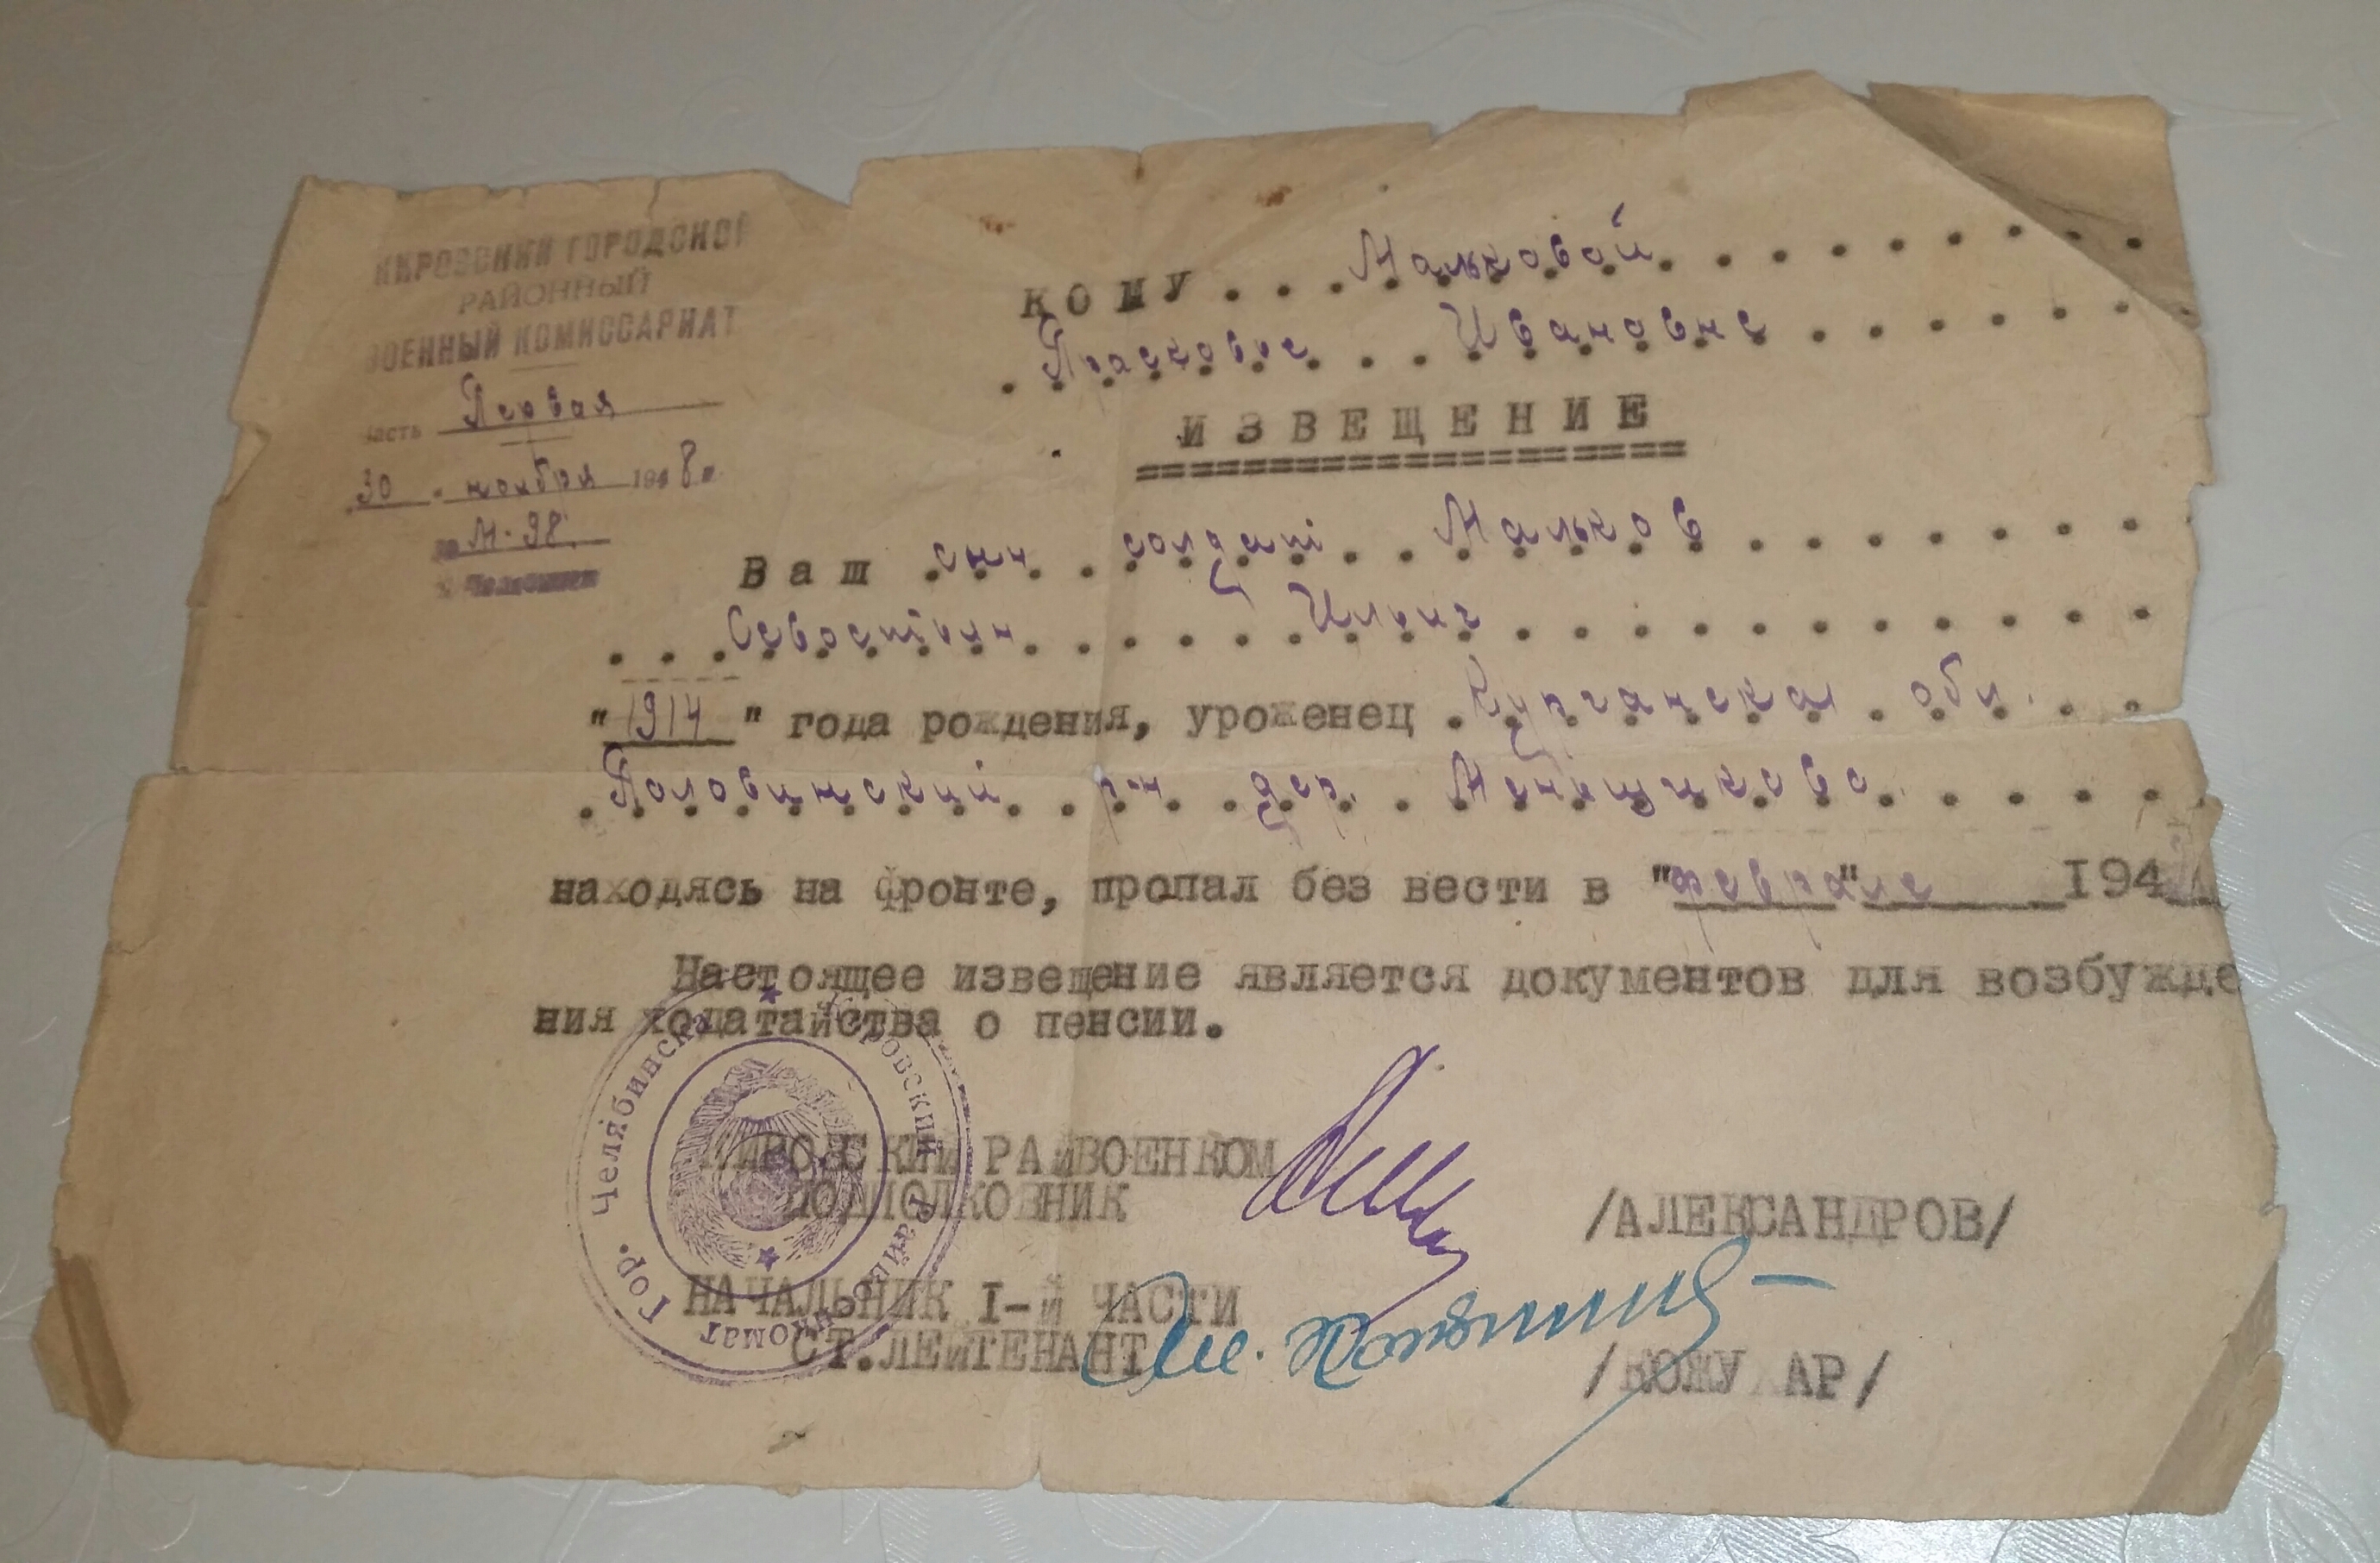 КИРОВСКИЙ ГОРОДСКОЙ
РАЙОННЫЙ
ВОЕННЫЙ КОМИССАРИАТ
часть Первая
30 " ноября 1948г.
М-98
г. Челябинск
КОМУ . . . Мальковой . . . . . . . .
. Прасковье . . . Ивановне . . . . . . .
ИЗВЕЩЕНИЕ
Ваш сын . . солдат . . Мальков . . . . . . . .
. . . Севостьян . . . . . Ильич . . . . . . . . . . . .
"1914" года рождения, уроженец . Курганская . обл. . .
. Половинский . р-н . дер. . Меньщиково . . . . .
находясь на фронте, пропал без вести в "февра"ле 194
Настоящее извещение является документов для возбужде
ния ходатайства о пенсии.
КИРОВСКИЙ РАЙВОЕНКОМ
ПОДПОЛКОВНИК
/АЛЕКСАНДРОВ/
НАЧАЛЬНИК I-й ЧАСТИ
СТ.ЛЕЙТЕНАНТ
/КОЖУ АР/
Гор. Челябинск Кировский Райвоенкомат